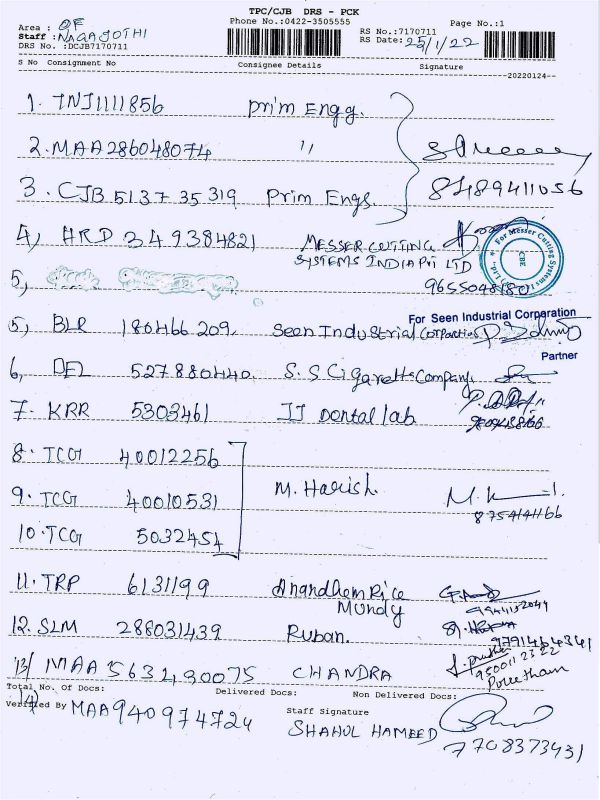 TPC/CJB DRS - PCK
Area : OF
Phone No.:0422-3505555
Page No.:1
Staff :NAGAJOTHI
RS No.:7170711
DRS No. :DCJB7170711
RS Date: 25/1/22
S No Consignment No Consignee Details Signature
20220124
1. TNJ1111856 Prim Engg.
2. MAA286048074 ,,
3. CJB 513735319 Prim Engg
8489411056
4) HRD 349384821 MESSER CUTTING
SYSTEMS INDIA PVT LTD
9655048180
For Messer Cutting Systems India Pvt Ltd.,
CBE
5)
For Seen Industrial Corporation
5) BLR 180466209. Seen Industrial Corporation
Partner
6, DEL 527880440. S.S Cigarette Company
7. KRR 5303461 JJ Dental lab
8. TCG 40012256
9. TCG 40010531 M. Harish.
8754141166
10. TCG 5032454
11. TRP 6131199 Anandhem Rice
Mundy
9944132049
12. SLM 288031439 Ruban.
9791464341
13) MAA 563290075 CHANDRA
9500112322
Preetham
Total No. of Docs: Delivered Docs: Non Delivered Docs:
14)
Verified By MAA940974724 Staff Signature
SHAHUL HAMEED
7708373431